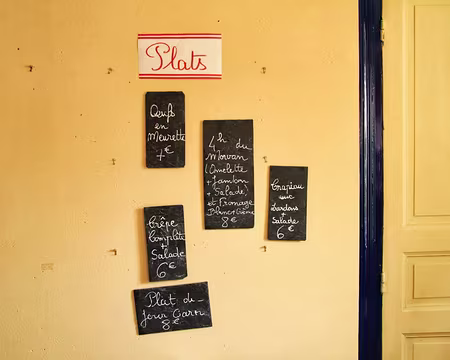 Plats
Œufs
en
Meurette
7€
4h du
Morvan
(Omelette
+ Jambon
+ Salade)
et Fromage
8€
Crapiau
aux
Lardons
+
Salade
6€
Crêpe
Complète
+
Salade
6€
Plat du
jour Garni
8€